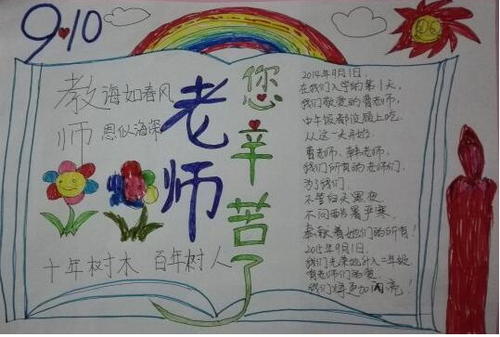 9.10
教诲如春风
师恩似海深
老师
您辛苦了
十年树木 百年树人
2014年9月1日
在我们入学的第1天,
我们敬爱的老师,
中午饭都没顾上吃
从这一天开始,
老师、韩老师,
我们所有的老师们,
为了我们,
不管白天黑夜
不问酷暑严寒,
奉献着她们的所有!
2015年9月1日,
我们光荣地升入二年级
有老师们的爱
我们将更加闪亮!